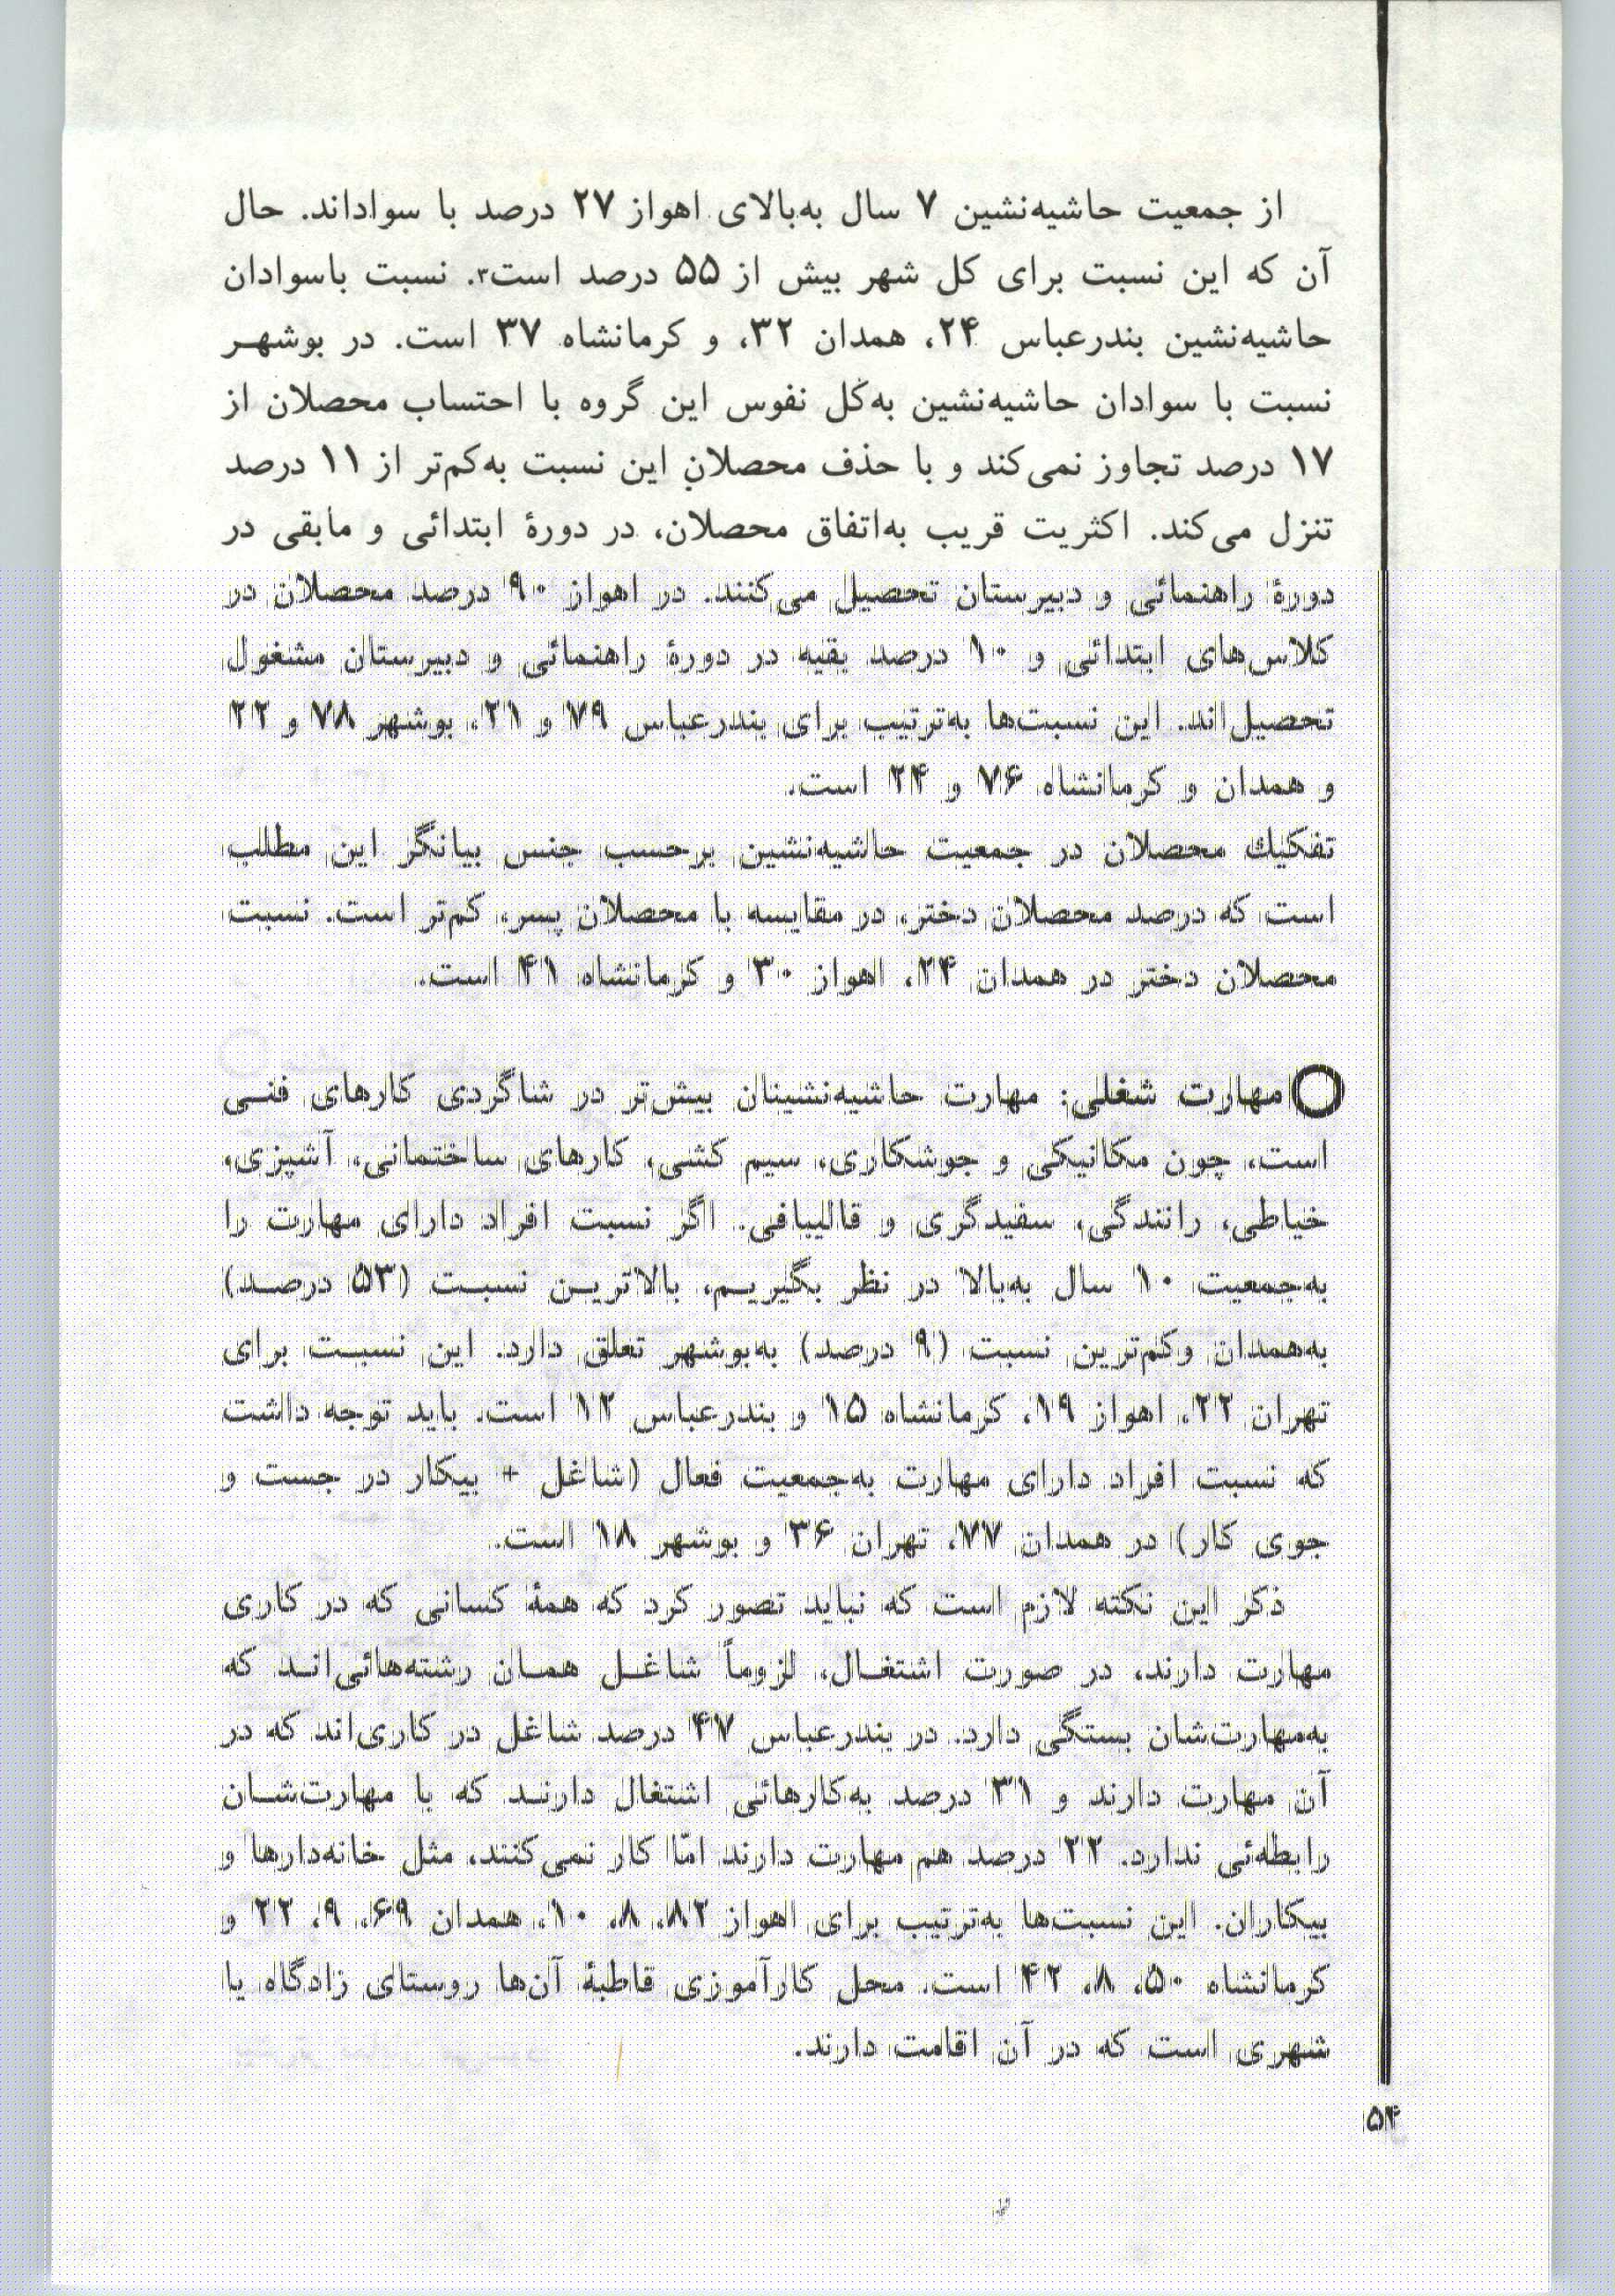 از جمعیت حاشیه‌نشین ۷ سال به‌بالای اهواز ۲۷ درصد با سواداند. حال
آن که این نسبت برای کل شهر بیش از ۵۵ درصد است۳. نسبت باسوادان
حاشیه‌نشین بندرعباس ۲۴، همدان ۳۲، و کرمانشاه ۳۷ است. در بوشهر
نسبت با سوادان حاشیه‌نشین به‌کل نفوس این گروه با احتساب محصلان از
۱۷ درصد تجاوز نمی‌کند و با حذف محصلانِ این نسبت به‌کم‌تر از ۱۱ درصد
تنزل می‌کند. اکثریت قریب به‌اتفاق محصلان، در دورهٔ ابتدائی و مابقی در
دورهٔ راهنمائی و دبیرستان تحصیل می‌کنند. در اهواز ۹۰ درصد محصلان در
کلاس‌های ابتدائی و ۱۰ درصد بقیه در دورهٔ راهنمائی و دبیرستان مشغول
تحصیل‌اند. این نسبت‌ها به‌ترتیب برای بندرعباس ۷۹ و ۲۱، بوشهر ۷۸ و ۲۲
و همدان و کرمانشاه ۷۶ و ۲۴ است.
تفکیك محصلان در جمعیت حاشیه‌نشین برحسب جنس بیانگر این مطلب
است که درصد محصلان دختر، در مقایسه با محصلان پسر، کم‌تر است. نسبت
محصلان دختر در همدان ۲۴، اهواز ۳۰ و کرمانشاه ۴۱ است.
مهارت شغلی: مهارت حاشیه‌نشینان بیش‌تر در شاگردی کارهای فنی
است، چون مکانیکی و جوشکاری، سیم کشی، کارهای ساختمانی، آشپزی،
خیاطی، رانندگی، سفیدگری و قالیبافی. اگر نسبت افراد دارای مهارت را
به‌جمعیت ۱۰ سال به‌بالا در نظر بگیریم، بالاترین نسبت (۵۳ درصد)
به‌همدان وکم‌ترین نسبت (۹ درصد) به‌بوشهر تعلق دارد. این نسبت برای
تهران ۲۲، اهواز ۱۹، کرمانشاه ۱۵ و بندرعباس ۱۲ است. باید توجه داشت
که نسبت افراد دارای مهارت به‌جمعیت فعال (شاغل + بیکار در جست و
جوی کار) در همدان ۷۷، تهران ۳۶ و بوشهر ۱۸ است.
ذکر این نکته لازم است که نباید تصور کرد که همهٔ کسانی که در کاری
مهارت دارند، در صورت اشتغال، لزوماً شاغل همان رشته‌هائی‌اند که
به‌مهارت‌شان بستگی دارد. در بندرعباس ۴۷ درصد شاغل در کاری‌اند که در
آن مهارت دارند و ۳۱ درصد به‌کارهائی اشتغال دارند که با مهارت‌شان
رابطه‌ئی ندارد. ۲۲ درصد هم مهارت دارند امّا کار نمی‌کنند، مثل خانه‌دارها و
بیکاران. این نسبت‌ها به‌ترتیب برای اهواز ۸۲، ۸، ۱۰، همدان ۶۹، ۹، ۲۲ و
کرمانشاه ۵۰، ۸، ۴۲ است. محل کارآموزی قاطبهٔ آن‌ها روستای زادگاه یا
شهری است که در آن اقامت دارند.
۵۴